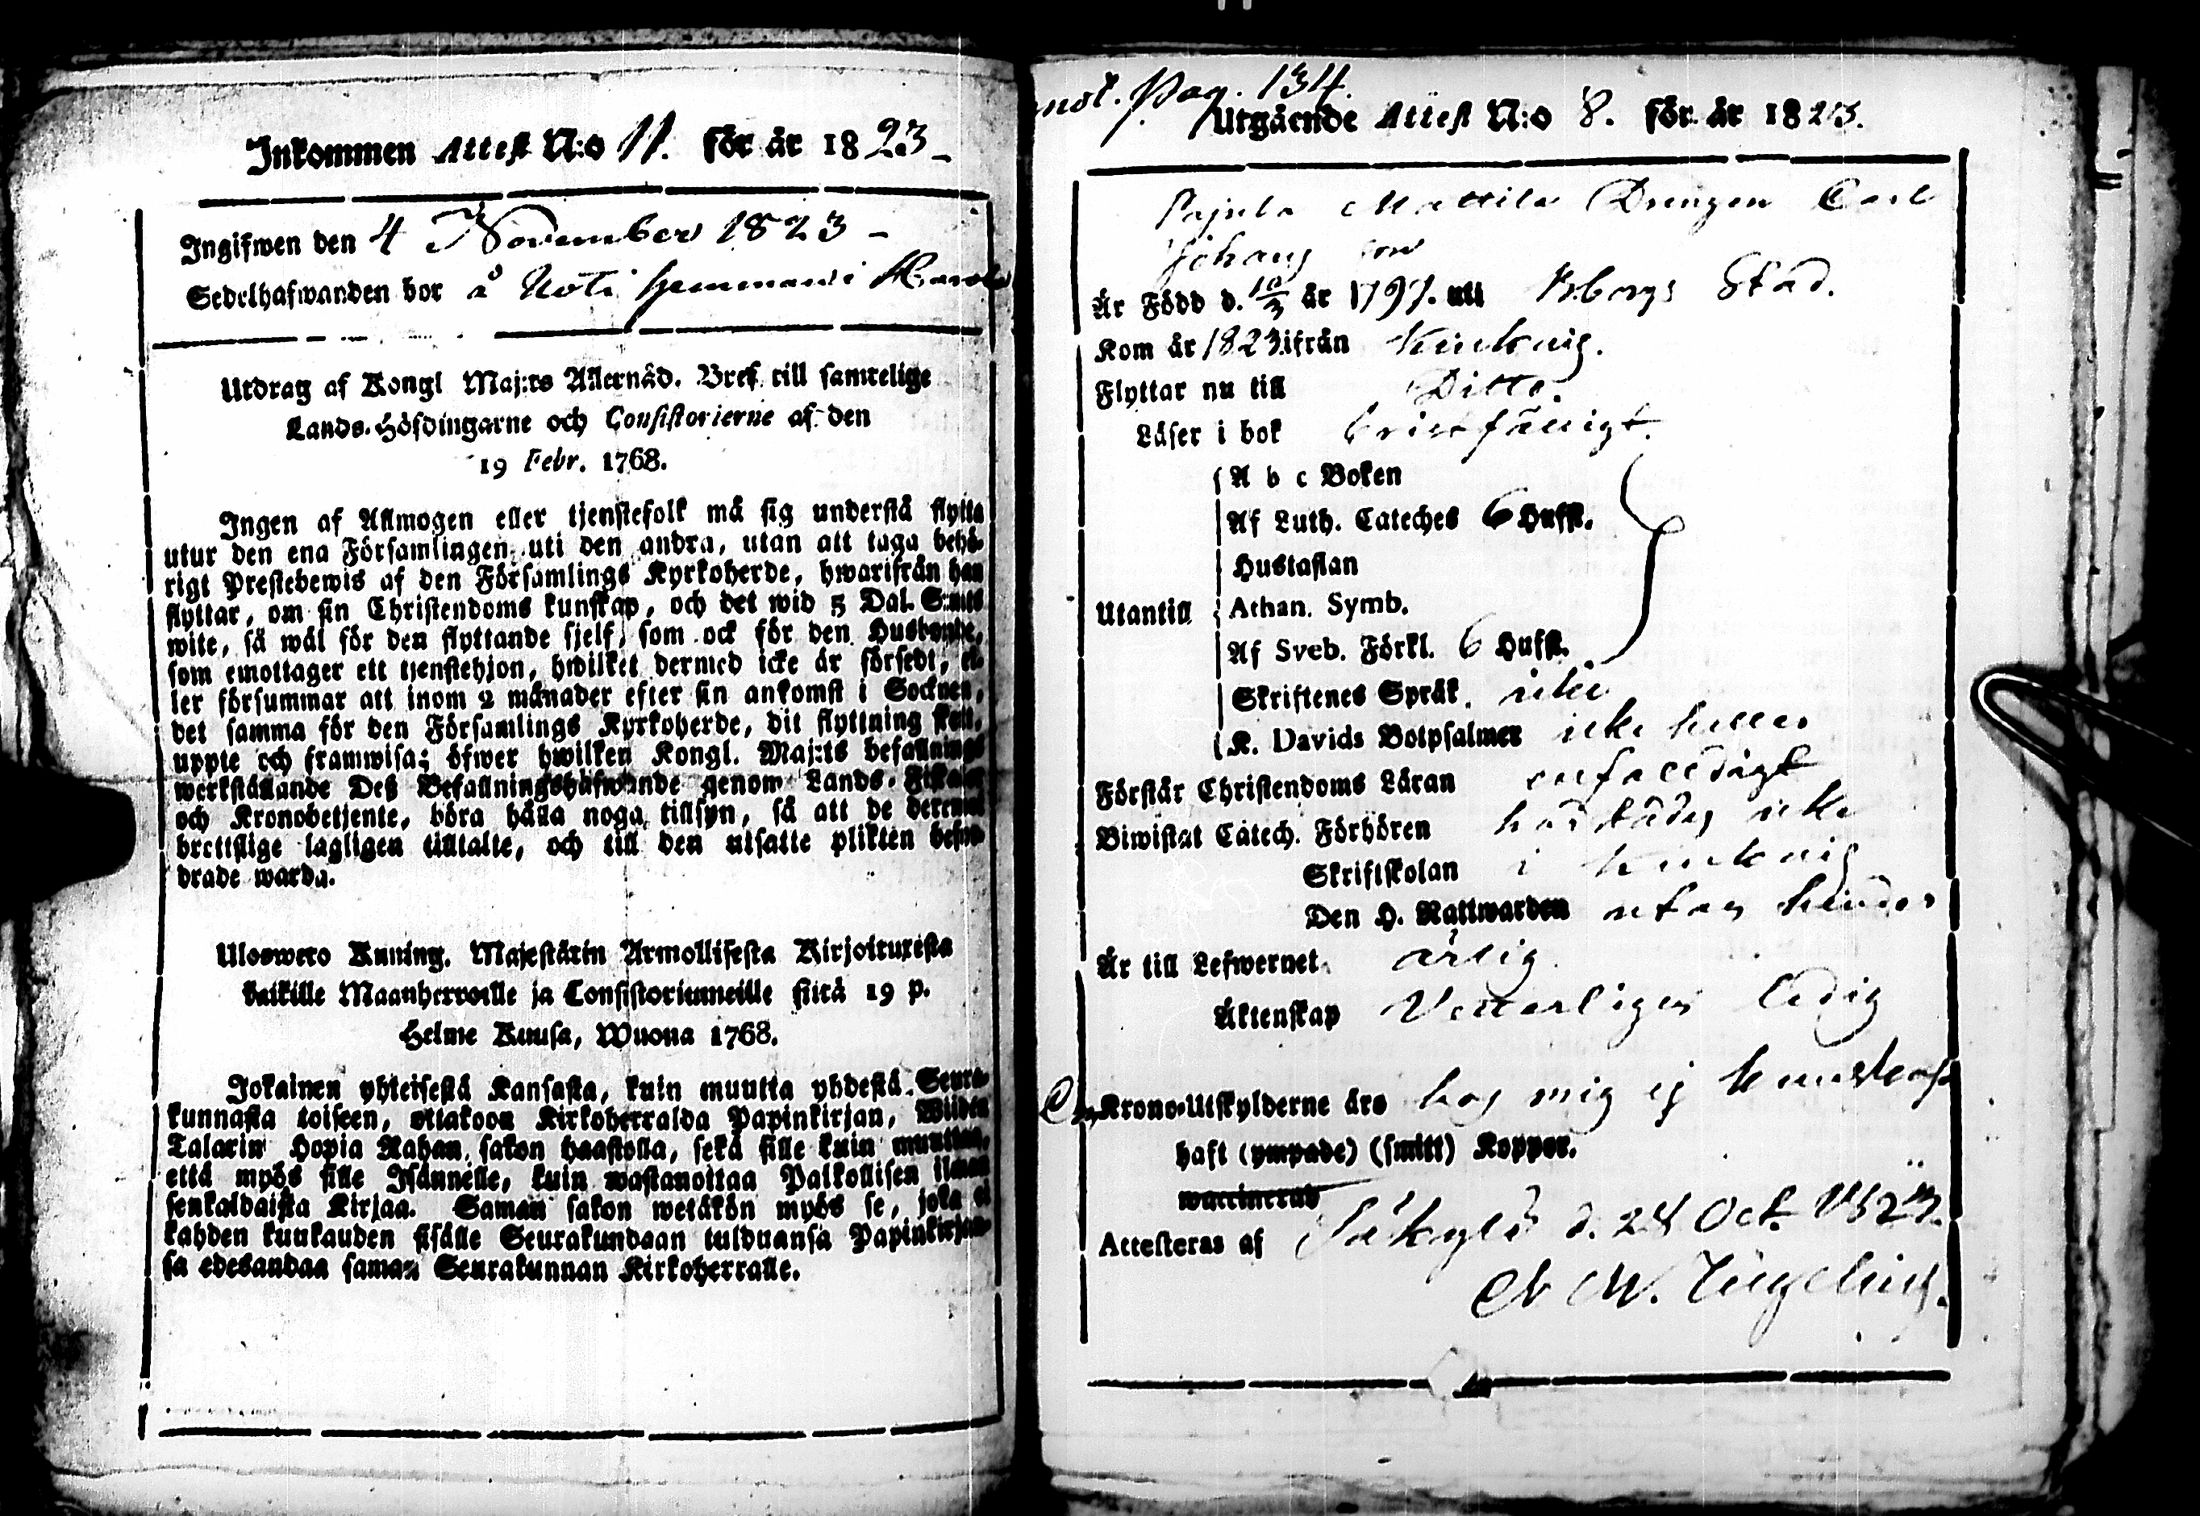 Inkommen Attest N:o 11. för år 1823 -
Ingifwen den 4 November 1823 -
Sedelhafwanden bor å Uoti hemman i
Utdrag af Kongl Maj:ts Allernåd. Bref till samtelige
Lands-Höfdingarne och Consistorierne af den
19 Febr. 1768.
Ingen af Allmogen eller tjenstefolk må sig understå flytta
utur den ena Församlingen uti den andra, utan att taga behö-
rigt Prestebewis af den Församlings Kyrkoherde, hwarifrån han
flyttar, om sin Christendoms kunskap, och det wid 5 Dal. S:mts
wite, så wäl för den flyttande sjelf, som ock för den Husbonde,
som emottager ett tjenstehjon, hwilket dermed icke är försedt, el-
ler försummar att inom 2 månader efter sin ankomst i Socknen,
det samma för den Församlings Kyrkoherde, dit flyttning sker,
uppte och framwisa; öfwer hwilken Kongl. Maj:ts befallnings
werkställande Deß Befallningshafwande genom Lands-Fiskaler
och Kronobetjente, böra hålla noga tillsyn, så att de deremot
brottslige lagligen tilltalte, och till den utsatte plikten befor-
drade warda.
Uloswero Kuning. Majestätin Armollisesta Kirjoituxesta
kaikille Maanherroille ja Consistoriumeille siitä 19 p.
Helme Kuusa, Wuona 1768.
Jokainen yhteisestä Kansasta, kuin muutta yhdestä Seura-
kunnasta toiseen, ottakoon Kirkoherralda Papinkirjan, Wiiden
Talarin Hopia Rahan sakon haastolla, sekä sille kuin muuttaa,
että myös sille Isännelle, kuin wastanottaa Palkollisen ilman
senkaldaista Kirjaa. Saman sakon wetäkön myös se, joka ei
kahden kuukauden sisälle Seurakundaan tulduansa Papinkirjaan-
sa edesandaa saman Seurakunnan Kirkoherralle.
Pag. 134.
Utgående Attest N:o 8. för år 1823.
Pajula Mattila Drengen Carl
Johans son
Är Född d. 10/3 år 1797. uti Stad.
Kom år 1823 ifrån
Flyttar nu till Ditto.
Läser i bok bristfälligt.
A b c Boken
Af Luth. Cateches 6 Hufst.
Hustaflan
Utantill Athan. Symb.
Af Sveb. Förkl. 6 Hufst.
Skriftenes Språk icke
K. Davids Botpsalmer icke heller
Förstår Christendoms Läran enfaldigt
Biwistat Catech. Förhören härstädes icke
Skriftskolan i
Den H. Nattwarden utan hinder
Är till Lefwernet ärlig
Äktenskap Vetterligen ledig
Om Krono-Utskylderne äro hos mig ej kunskap
haft (ympade) (smitt) Koppor.
waccinerad
Attesteras af Säkylä d. 24 Oct. 1823.